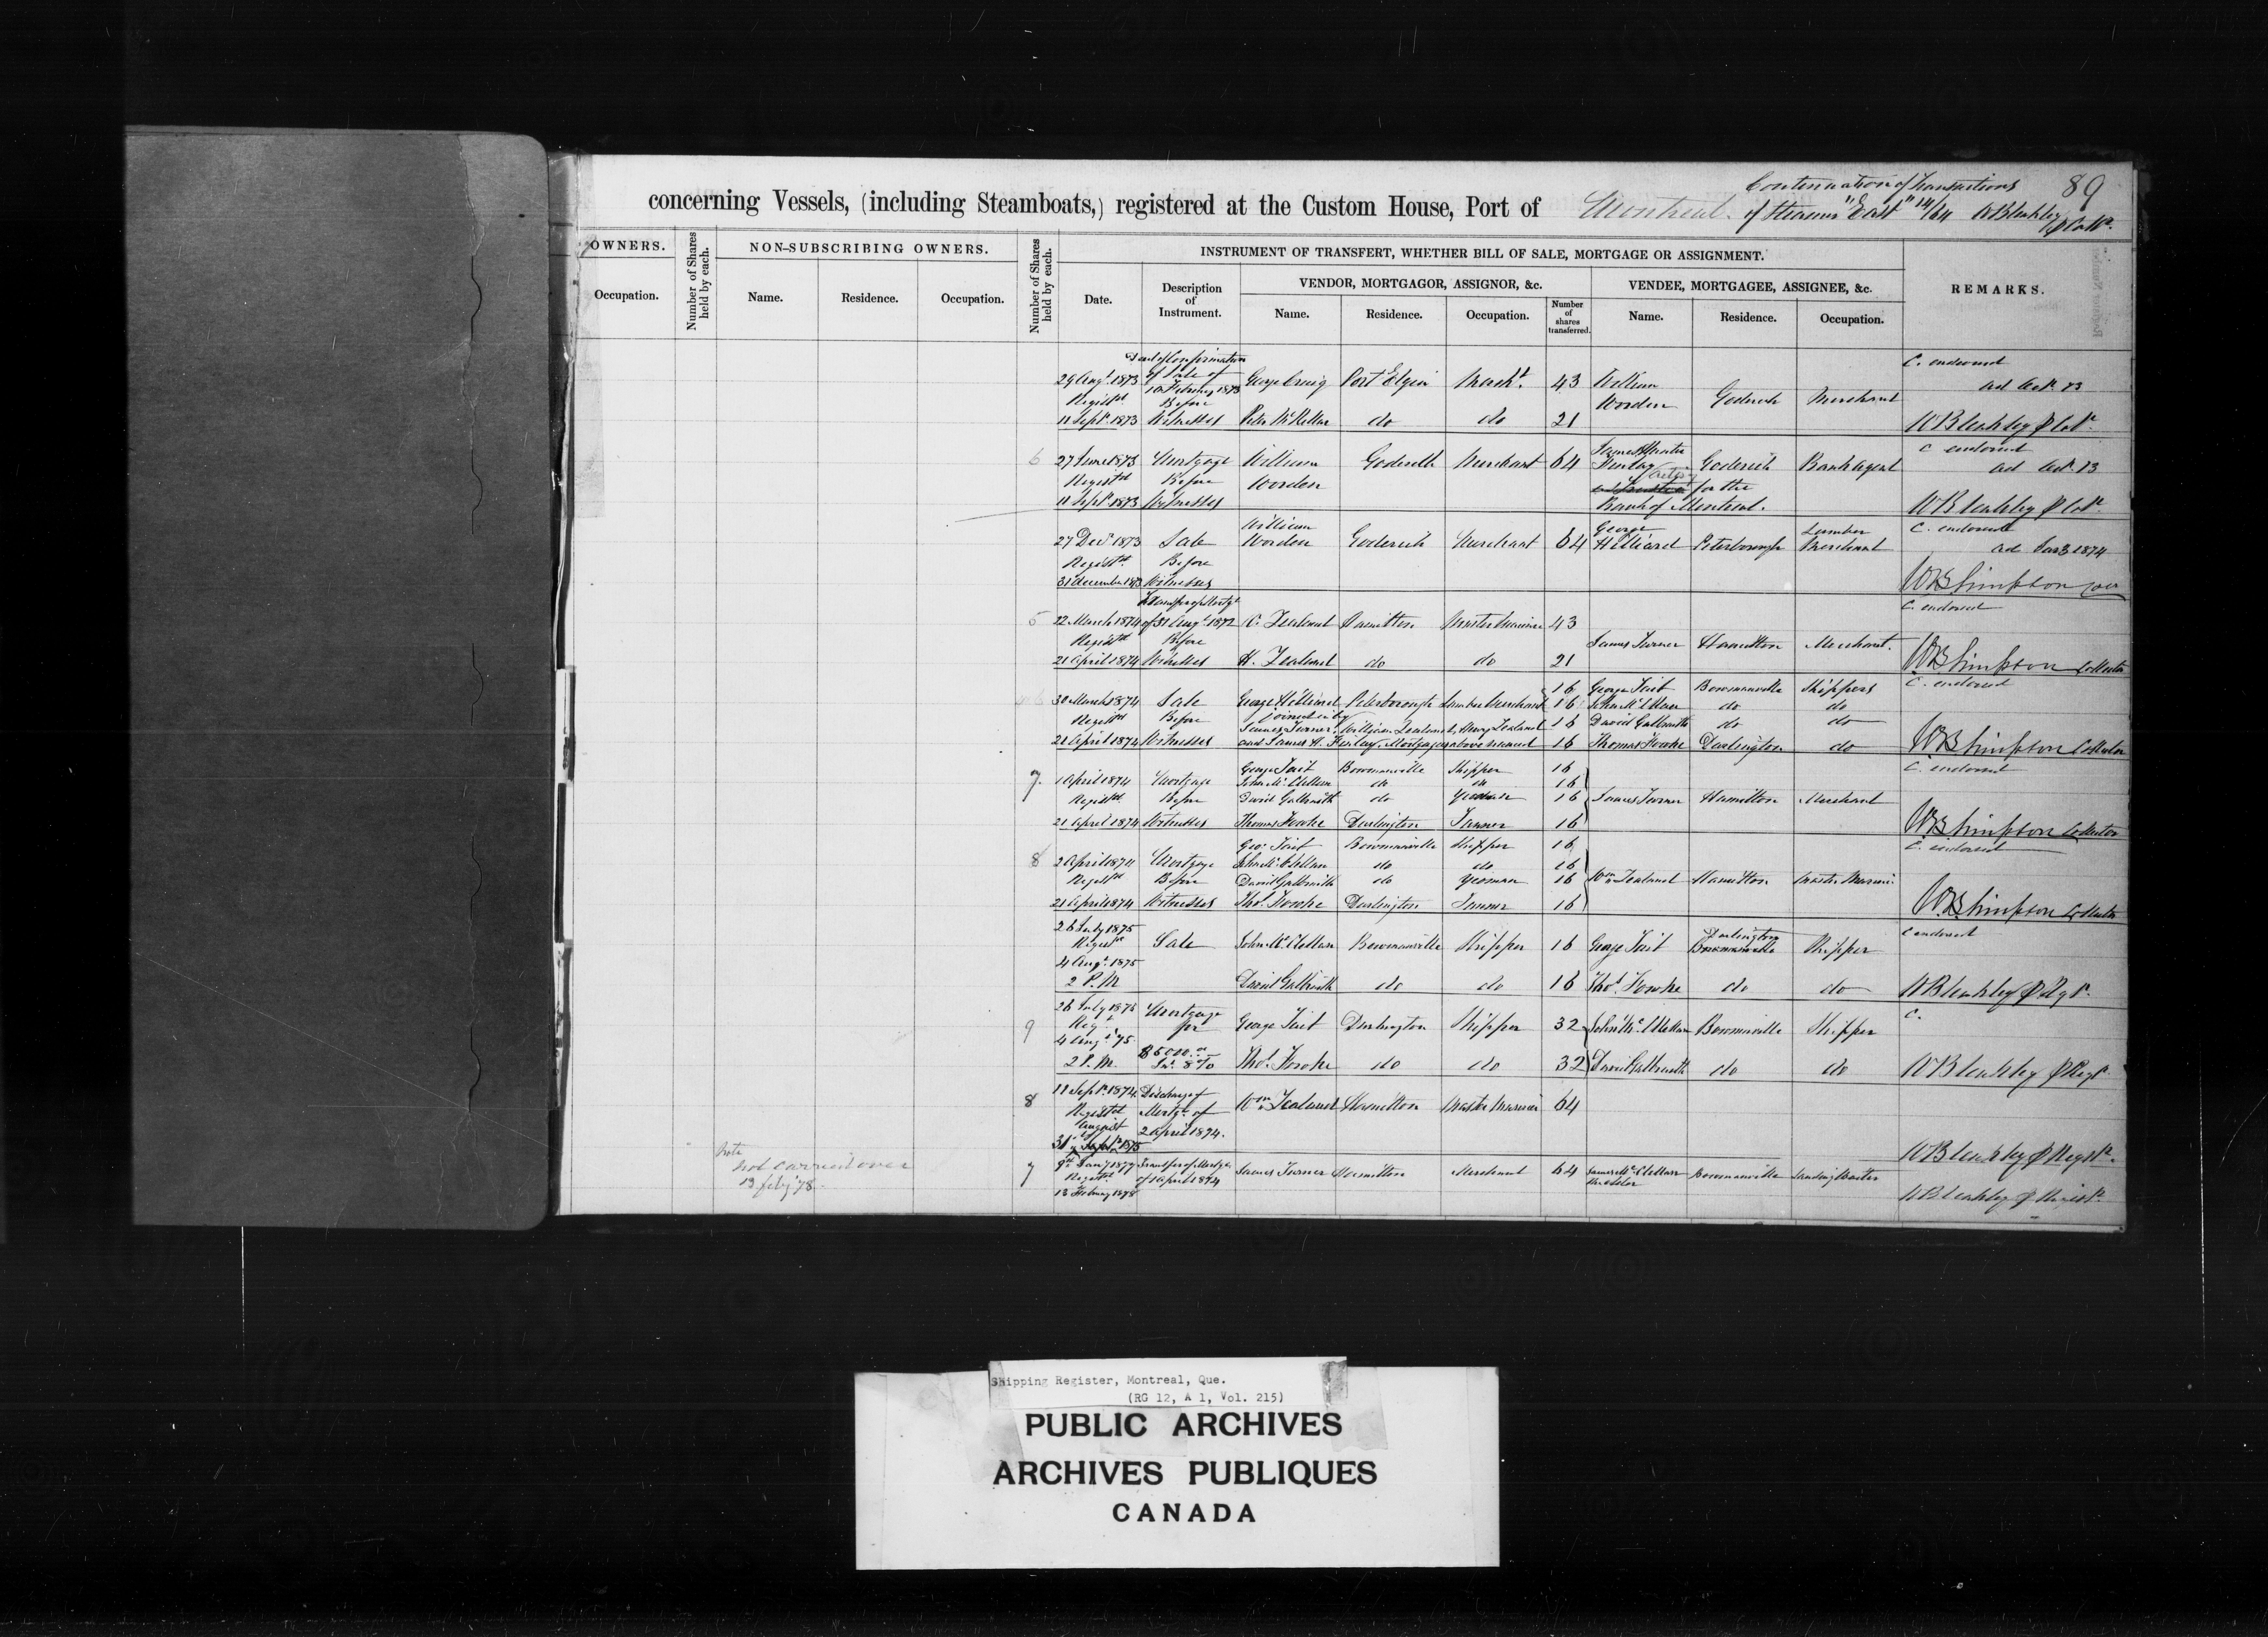 Continuation of Transactions 89
concerning Vessels, (including Steamboats,) registered at the Custom House, Port of Montreal. of Steamer "East" 14/64 WBleakley
OWNERS.
Occupation.
Number of Shares held by each.
NON-SUBSCRIBING OWNERS.
Name. Residence. Occupation.
Number of Shares held by each.
INSTRUMENT OF TRANSFERT, WHETHER BILL OF SALE, MORTGAGE OR ASSIGNMENT.
Date.
Description of Instrument.
VENDOR, MORTGAGOR, ASSIGNOR, &c.
Name. Residence. Occupation.
Number of shares transferred.
VENDEE, MORTGAGEE, ASSIGNEE, &c.
Name. Residence. Occupation.
REMARKS.
Deed of Confirmation C. endorsed
29 Augt. 1873 of Sale of 10 February 1873 George Craig Port Elgin 43 William Worden Goderich Merchant
Registd Before
11 Sept. 1873 Witnesses Peter McKellar do do 21 WBleakley
6 27 June 1873 Mortgage William Worden Goderich Merchant 64 Finlay Goderich Bank Agent C endorsed
Registd Before for the
11 Sept. 1873 Witnesses Bank of Montreal. WBleakley
27 Decr 1873 Sale William Worden Goderich Merchant 64 George Hilliard Peterborough Lumber Merchant C. endorsed
Registd. Before
31 December 1873 Witnesses WBSimpson
Transfer of Mortge C. endorsed
5 22 March 1874 of 31 Augt. 1872 Zealand Hamilton Master Mariner 43
Registd Before James Turner Hamilton Merchant.
21 April 1874 Witnesses H. Zealand do do 21 WBSimpson Collector
30 March 1874 Sale George Hilliard Peterborough Lumber Merchant 16 George Tait Bowmanville Skippers C. endorsed
Registd Before joined in by 16 John McClellan do do
James Turner, William Zealand, Henry Zealand 16 David Galbraith do do
21 April 1874 Witnesses and James H. Finlay, Mortgagees above named 16 Thomas Fowke Darlington do WBSimpson Collector
7. 1 April 1874 Mortgage George Tait Bowmanville Skipper 16 C. endorsed
John McClellan do do 16
Registd Before David Galbraith do Yeoman 16 James Turner Hamilton Merchant
21 April 1874 Witnesses Thomas Fowke Darlington Farmer 16 WBSimpson Collector
Geo. Tait Bowmanville Skipper 16 C. endorsed
8 2 April 1874 Mortgage John McClellan do do 16
Registd Before David Galbraith do Yeoman 16 Wm Zealand Hamilton Master Marin.
21 April 1874 Witnesses Thos. Fowke Darlington Farmer 16 WBSimpson Collector
26 July 1875 C endorsed
Sale John McClellan Bowmanville Skipper 16 George Tait Darlington Bowmanville Skipper
4 Augt. 1875
2 P.M. David Galbraith do do 16 Thos. Fowke do do WBleakley
26 July 1875 Mortgage C.
9 for George Tait Darlington Skipper 32 John McClellan Bowmanville Skipper
4 Augt. 75
2 P.M. $5000 Int. 8% Thos. Fowke do do 32 David Galbraith do do WBleakley
11 Sept. 1874 Discharge of
8 Registd Mortge of Wm Zealand Hamilton Master Mariner 64
August 2 April 1874.
31 Sept. 1875 WBleakley
Note
not carried over
13 feby '78.
7 Jany 1877 Transfer of Mortge James Turner Hamilton Merchant 64 James McClellan Bowmanville Landing Waiter
Registd of 1 April 1874
13 February 1878 WBleakley
Shipping Register, Montreal, Que.
(RG 12, A 1, Vol. 215)
PUBLIC ARCHIVES
ARCHIVES PUBLIQUES
CANADA